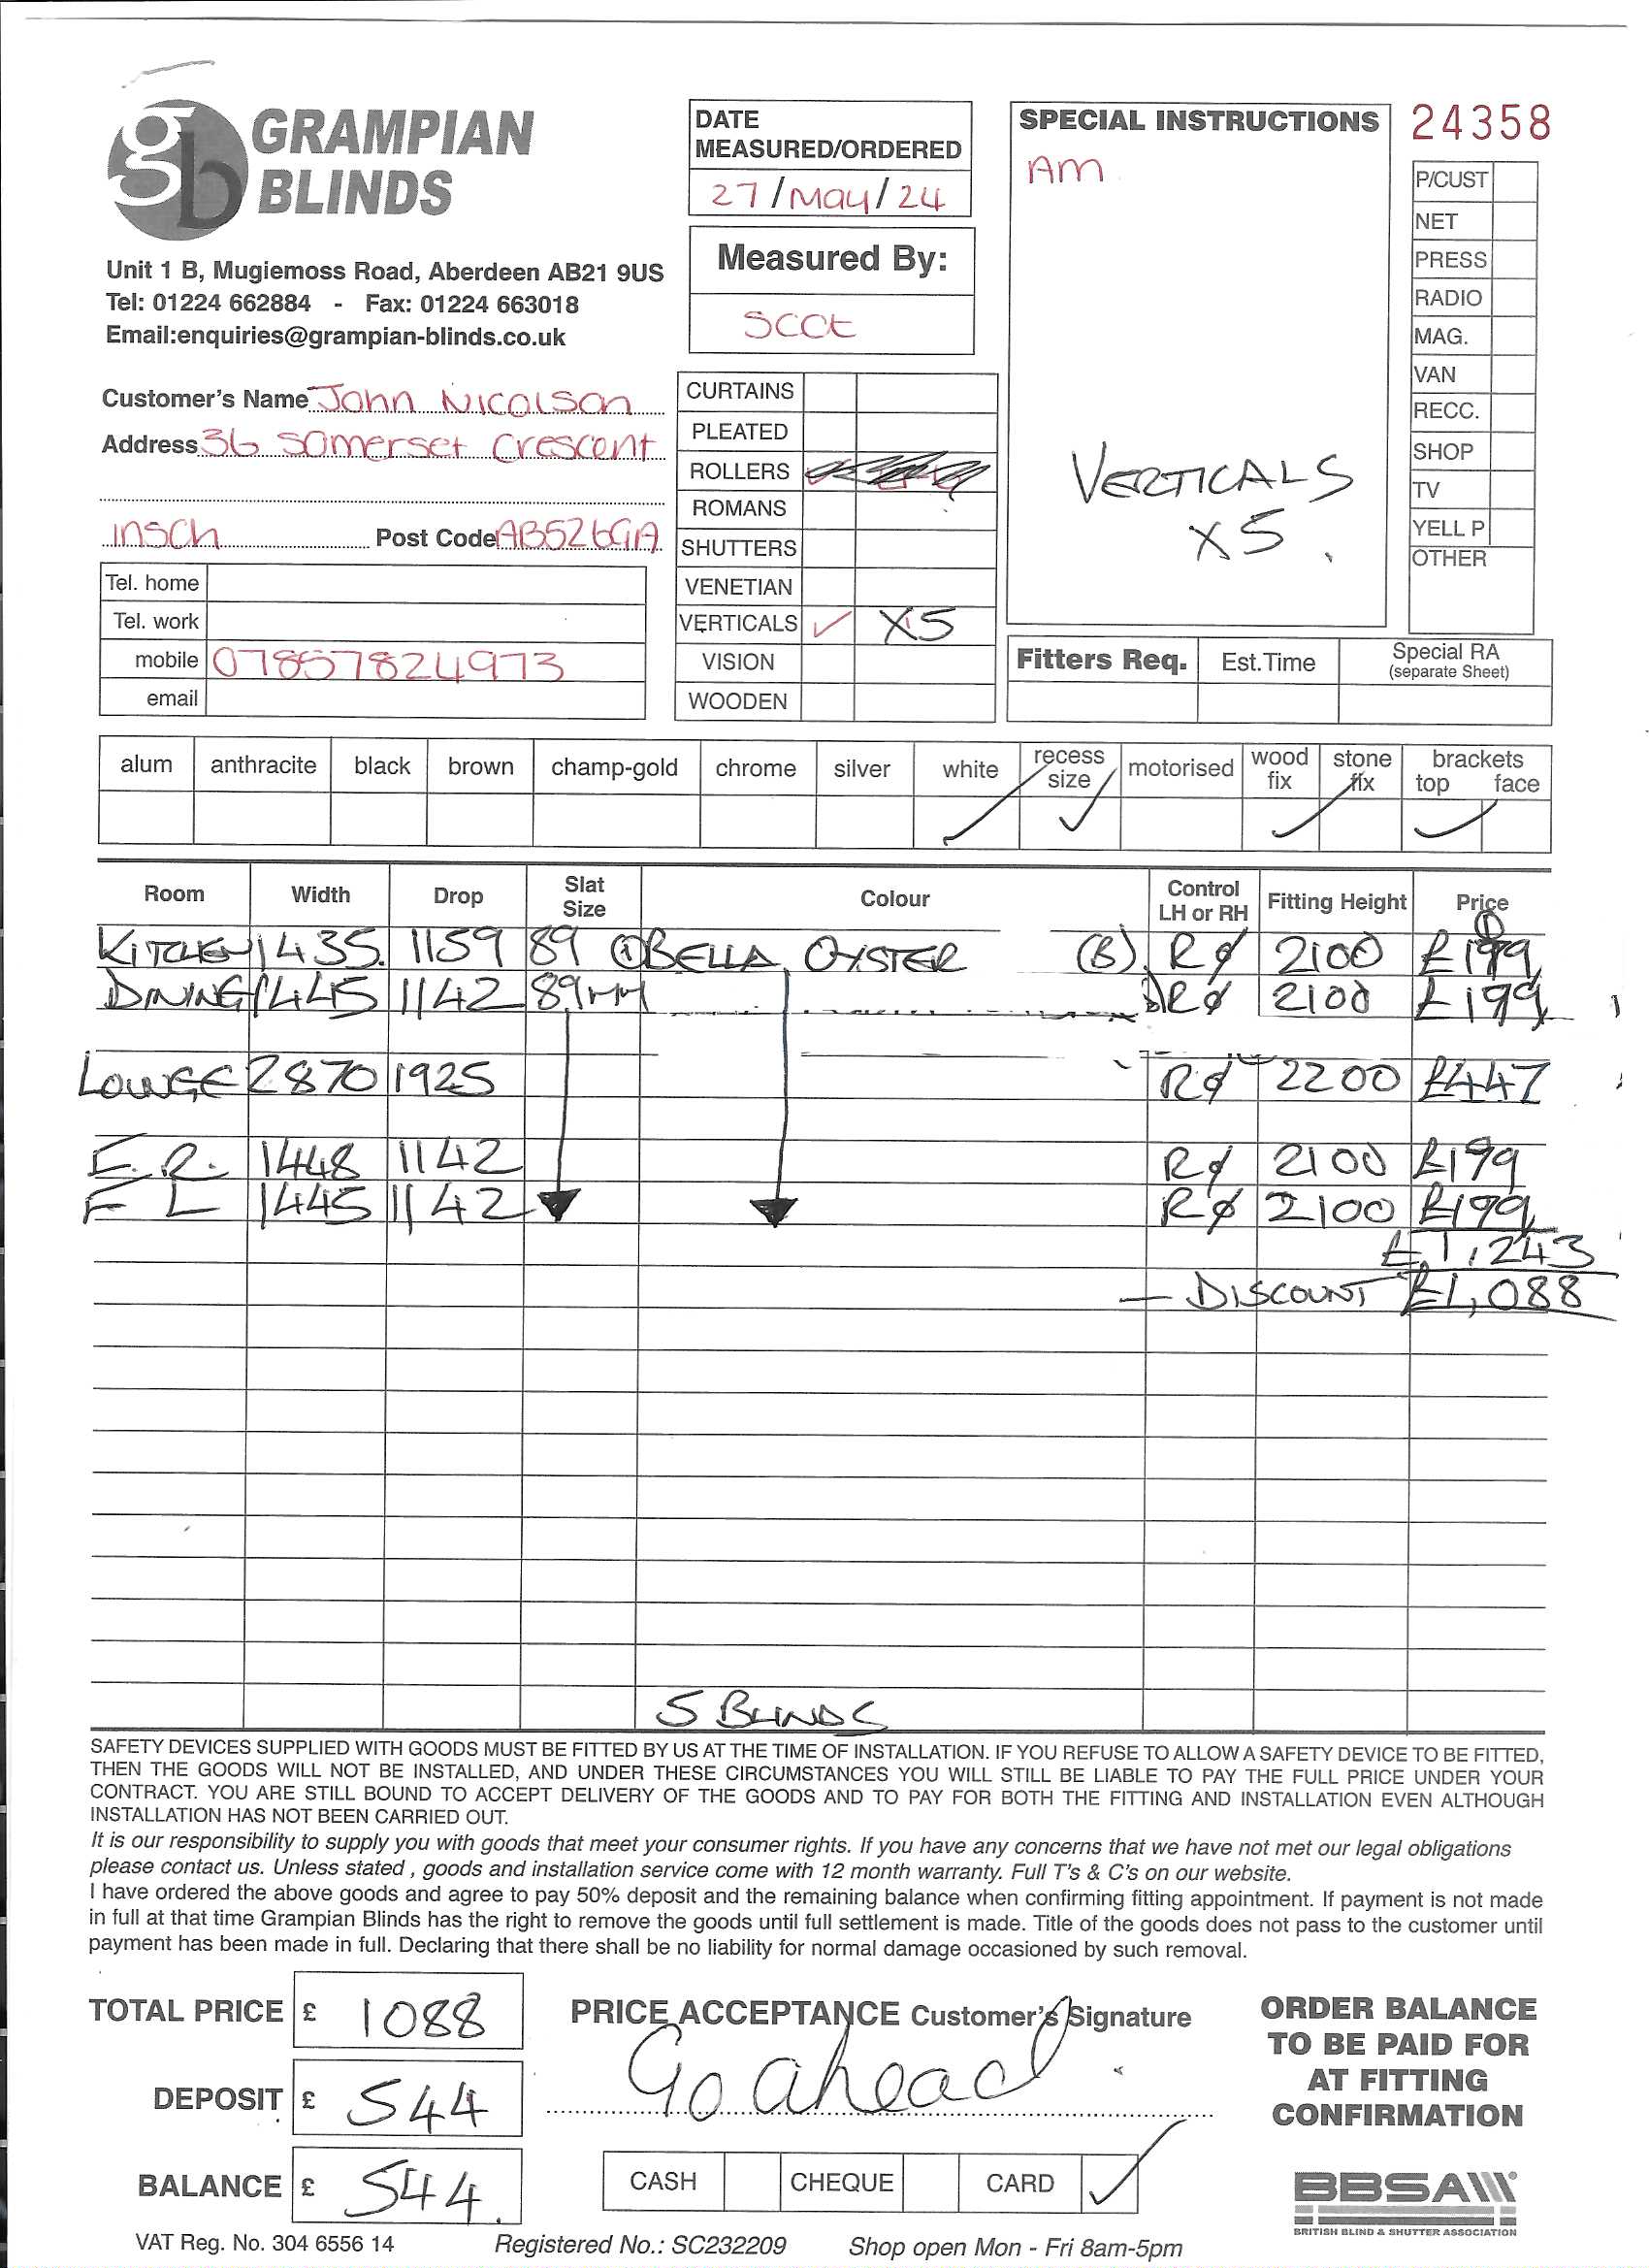 GRAMPIAN
BLINDS
Unit 1 B, Mugiemoss Road, Aberdeen AB21 9US
Tel: 01224 662884 - Fax: 01224 663018
Email:enquiries@grampian-blinds.co.uk
DATE
MEASURED/ORDERED
27/May/24
Measured By:
Scot
SPECIAL INSTRUCTIONS
AM
VERTICALS
X5.
24358
P/CUST
NET
PRESS
RADIO
MAG.
VAN
RECC.
SHOP
TV
YELL P
OTHER
Customer's Name John Nicolson
Address 36 Somerset Crescent
Insch Post Code AB52 6GA
Tel. home
Tel. work
mobile 07857824973
email
CURTAINS
PLEATED
ROLLERS
ROMANS
SHUTTERS
VENETIAN
VERTICALS ✓ X5
VISION
WOODEN
Fitters Req. Est.Time Special RA
(separate Sheet)
alum anthracite black brown champ-gold chrome silver white ✓ recess size ✓ motorised wood fix ✓ stone fix brackets top ✓ face
Room Width Drop Slat Size Colour Control LH or RH Fitting Height Price
KITCHEN 1435. 1159 89 ① BELLA OYSTER (B) RØ 2100 £199
DINING 1445 1142 89mm RØ 2100 £199
LOUNGE 2870 1925 RØ 2200 £447
1448 1142 RØ 2100 £199
1445 1142 RØ 2100 £199
£1,243
— DISCOUNT £1,088
5 BLINDS
SAFETY DEVICES SUPPLIED WITH GOODS MUST BE FITTED BY US AT THE TIME OF INSTALLATION. IF YOU REFUSE TO ALLOW A SAFETY DEVICE TO BE FITTED,
THEN THE GOODS WILL NOT BE INSTALLED, AND UNDER THESE CIRCUMSTANCES YOU WILL STILL BE LIABLE TO PAY THE FULL PRICE UNDER YOUR
CONTRACT. YOU ARE STILL BOUND TO ACCEPT DELIVERY OF THE GOODS AND TO PAY FOR BOTH THE FITTING AND INSTALLATION EVEN ALTHOUGH
INSTALLATION HAS NOT BEEN CARRIED OUT.
It is our responsibility to supply you with goods that meet your consumer rights. If you have any concerns that we have not met our legal obligations
please contact us. Unless stated , goods and installation service come with 12 month warranty. Full T's & C's on our website.
I have ordered the above goods and agree to pay 50% deposit and the remaining balance when confirming fitting appointment. If payment is not made
in full at that time Grampian Blinds has the right to remove the goods until full settlement is made. Title of the goods does not pass to the customer until
payment has been made in full. Declaring that there shall be no liability for normal damage occasioned by such removal.
TOTAL PRICE £ 1088
DEPOSIT £ 544
BALANCE £ 544.
PRICE ACCEPTANCE Customer's Signature
Go ahead
CASH CHEQUE CARD ✓
ORDER BALANCE
TO BE PAID FOR
AT FITTING
CONFIRMATION
BBSA
BRITISH BLIND & SHUTTER ASSOCIATION
VAT Reg. No. 304 6556 14 Registered No.: SC232209 Shop open Mon - Fri 8am-5pm